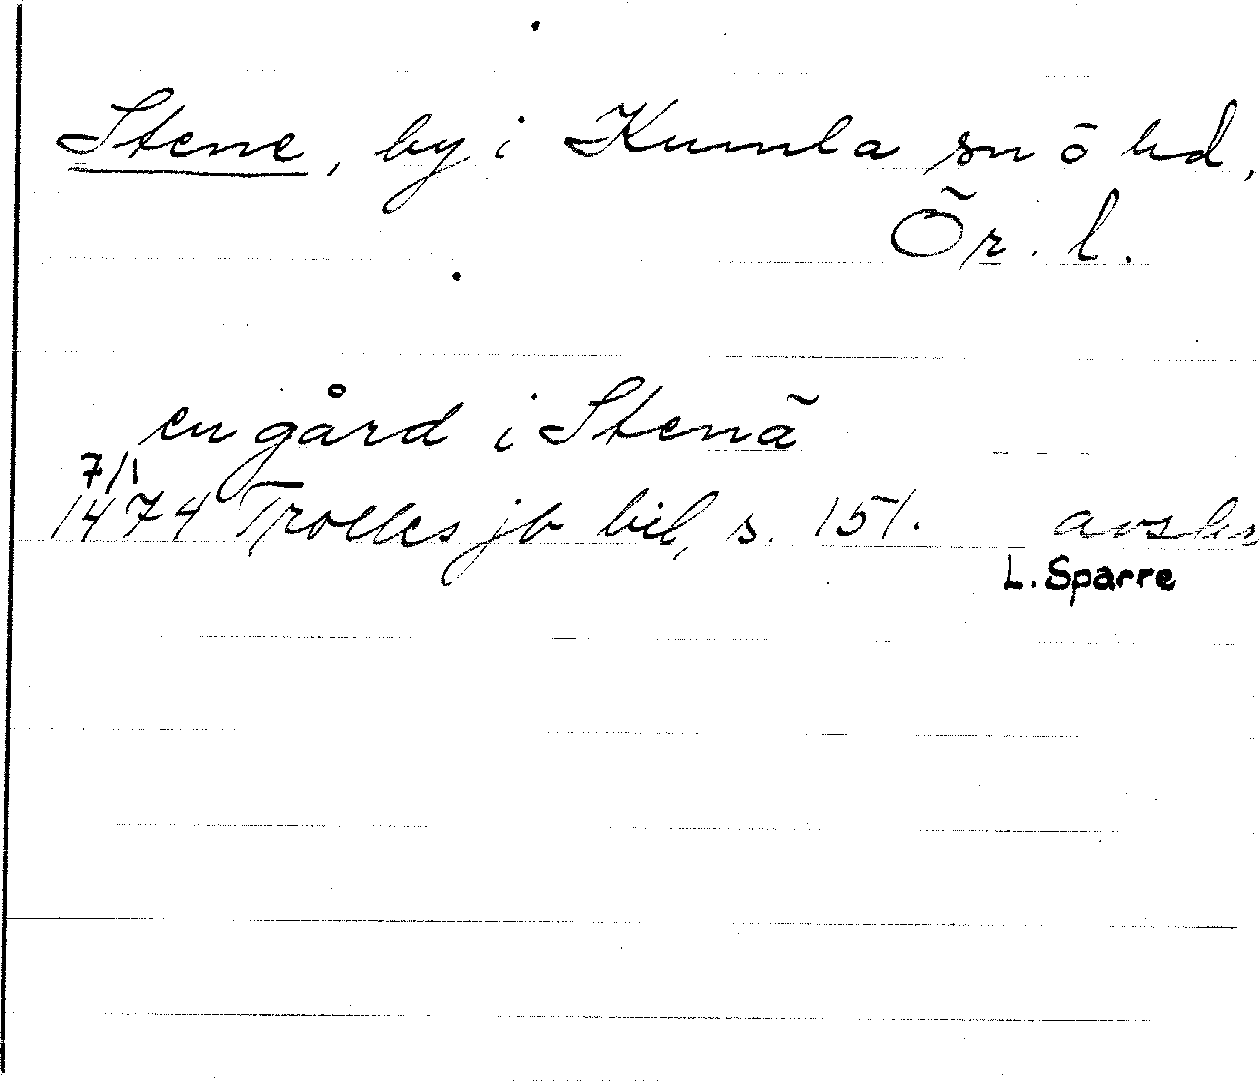 Stene, by i Kumla sn ö hd,
Ör. l.
en gård i Stenä
7/1
1474 Trolles jb bil, s. 151. avskr
L. Sparre